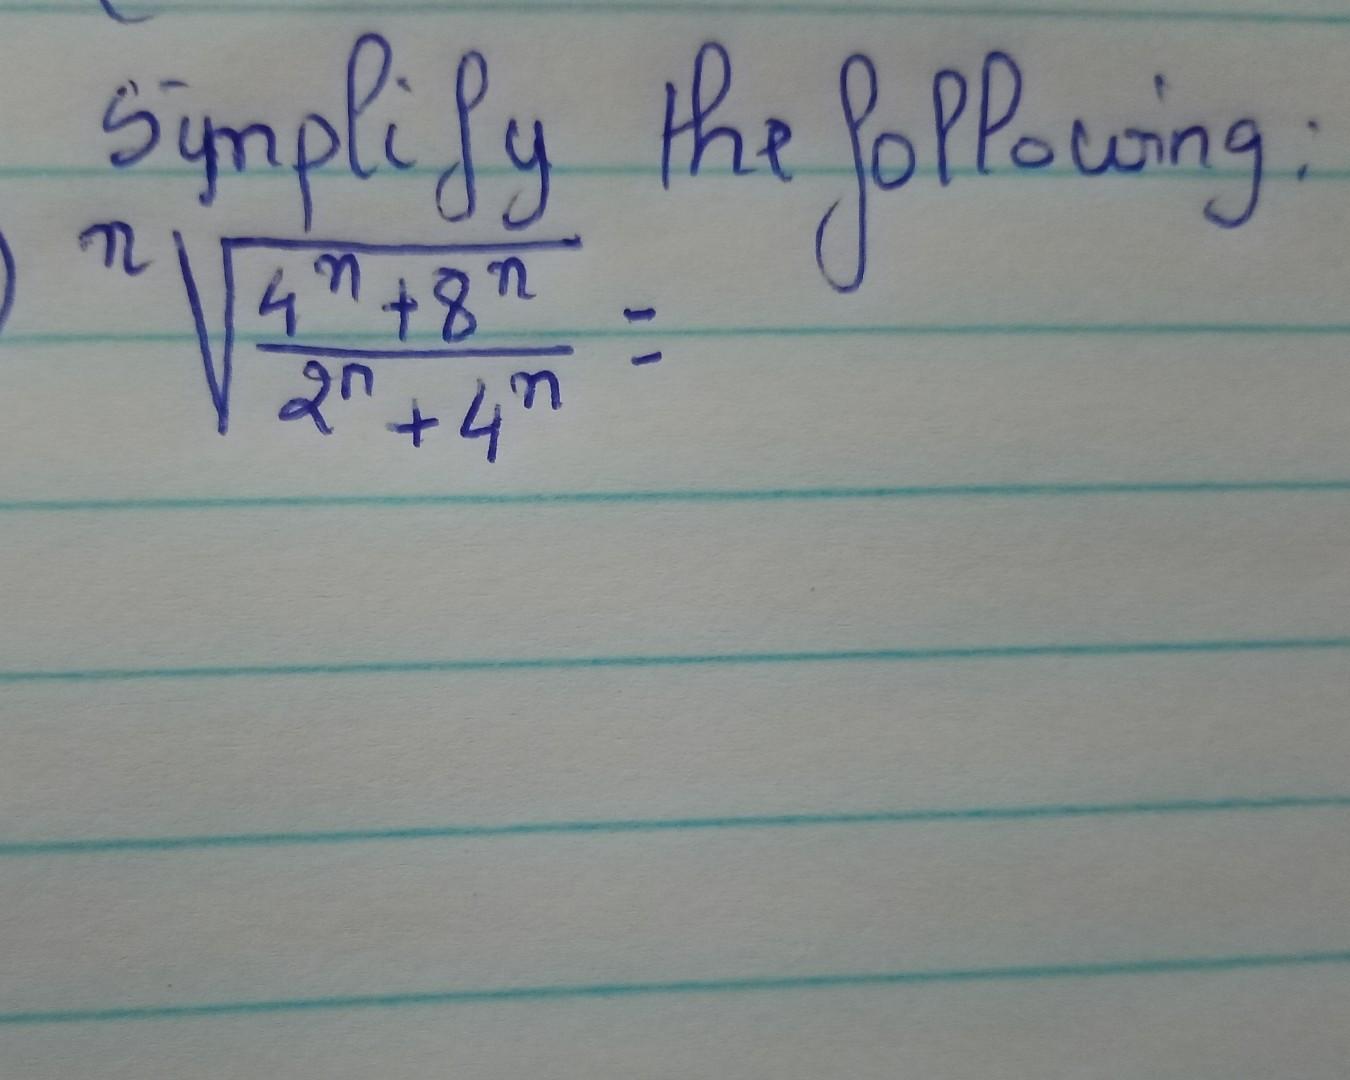 Symplify the following:
) ⁿ√((4ⁿ+8ⁿ)/(2ⁿ+4ⁿ)) =